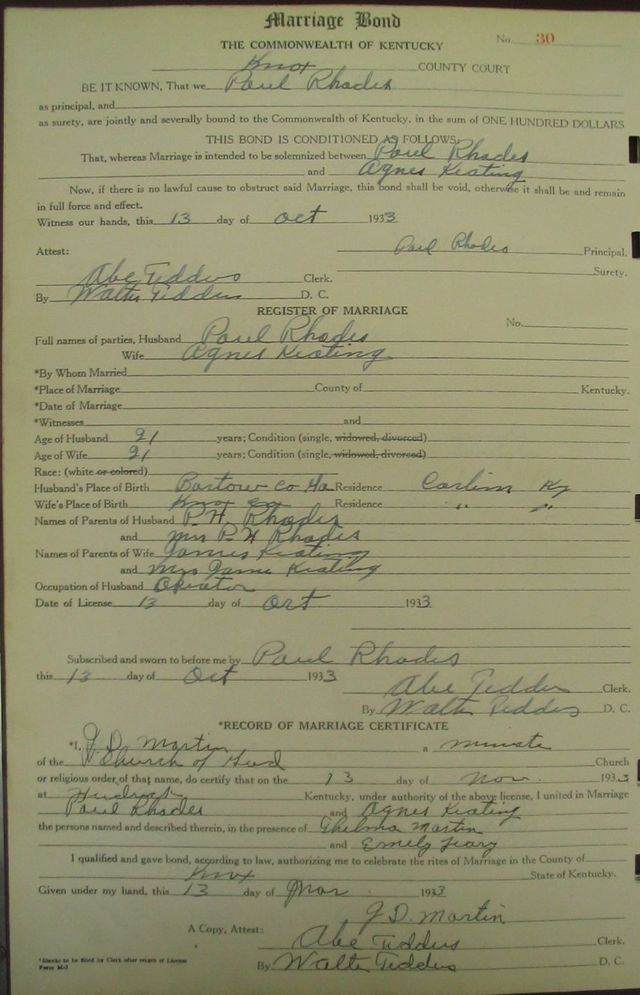 Marriage Bond
No. 30
THE COMMONWEALTH OF KENTUCKY
Knox COUNTY COURT
BE IT KNOWN, That we Paul Rhodes
as principal, and
as surety, are jointly and severally bound to the Commonwealth of Kentucky, in the sum of ONE HUNDRED DOLLARS
THIS BOND IS CONDITIONED AS FOLLOWS:
That, whereas Marriage is intended to be solemnized between Paul Rhodes
and Agnes Keating
Now, if there is no lawful cause to obstruct said Marriage, this bond shall be void, otherwise it shall be and remain
in full force and effect.
Witness our hands, this 13 day of Oct 1933
Paul Rhodes Principal.
Attest:
Surety.
Abe Tedders Clerk.
By Walter Tedders D. C.
REGISTER OF MARRIAGE
No.
Full names of parties, Husband Paul Rhodes
Wife Agnes Keating
*By Whom Married
*Place of Marriage County of Kentucky.
*Date of Marriage
*Witnesses and
Age of Husband 21 years; Condition (single, widowed, divorced)
Age of Wife 21 years; Condition (single, widowed, divorced)
Race: (white or colored)
Husband's Place of Birth Bartow Co Ga Residence Ky
Wife's Place of Birth Knox Co Residence " "
Names of Parents of Husband P. H. Rhodes
and Mrs P. H Rhodes
Names of Parents of Wife James Keating
and Mrs Jame Keating
Occupation of Husband Opeator
Date of License 13 day of Oct 1933
Subscribed and sworn to before me by Paul Rhodes
this 13 day of Oct 1933
Abe Tedders Clerk.
By Walter Tedders D. C.
*RECORD OF MARRIAGE CERTIFICATE
*I, J. D. Martin a
of the Church of Church
or religious order of that name, do certify that on the 13 day of Nov. 1933
at Kentucky, under authority of the above license, I united in Marriage
Paul Rhodes and Agnes Keating
the persons named and described therein, in the presence of Thelma Martin
and Emely
I qualified and gave bond, according to law, authorizing me to celebrate the rites of Marriage in the County of
Knox State of Kentucky.
Given under my hand, this 13 day of 1933
J. D. Martin
A Copy, Attest: Abe Tedders Clerk.
By Walter Tedders D. C.
*Blanks to be filled by Clerk after return of License
Form M-2